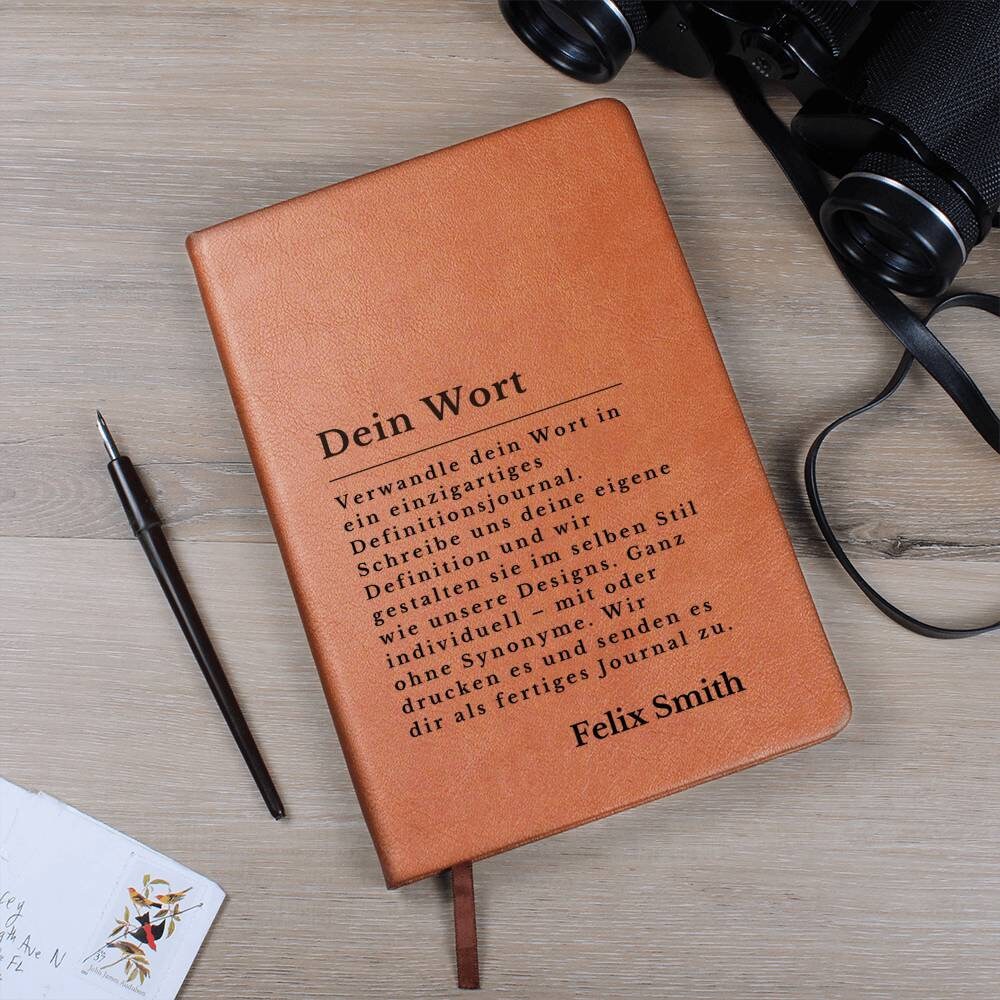 Dein Wort
Verwandle dein Wort in
ein einzigartiges
Definitionsjournal.
Schreibe uns deine eigene
Definition und wir
gestalten sie im selben Stil
wie unsere Designs. Ganz
individuell – mit oder
ohne Synonyme. Wir
drucken es und senden es
dir als fertiges Journal zu.
Felix Smith
Ave N
FL
37
John James Audubon